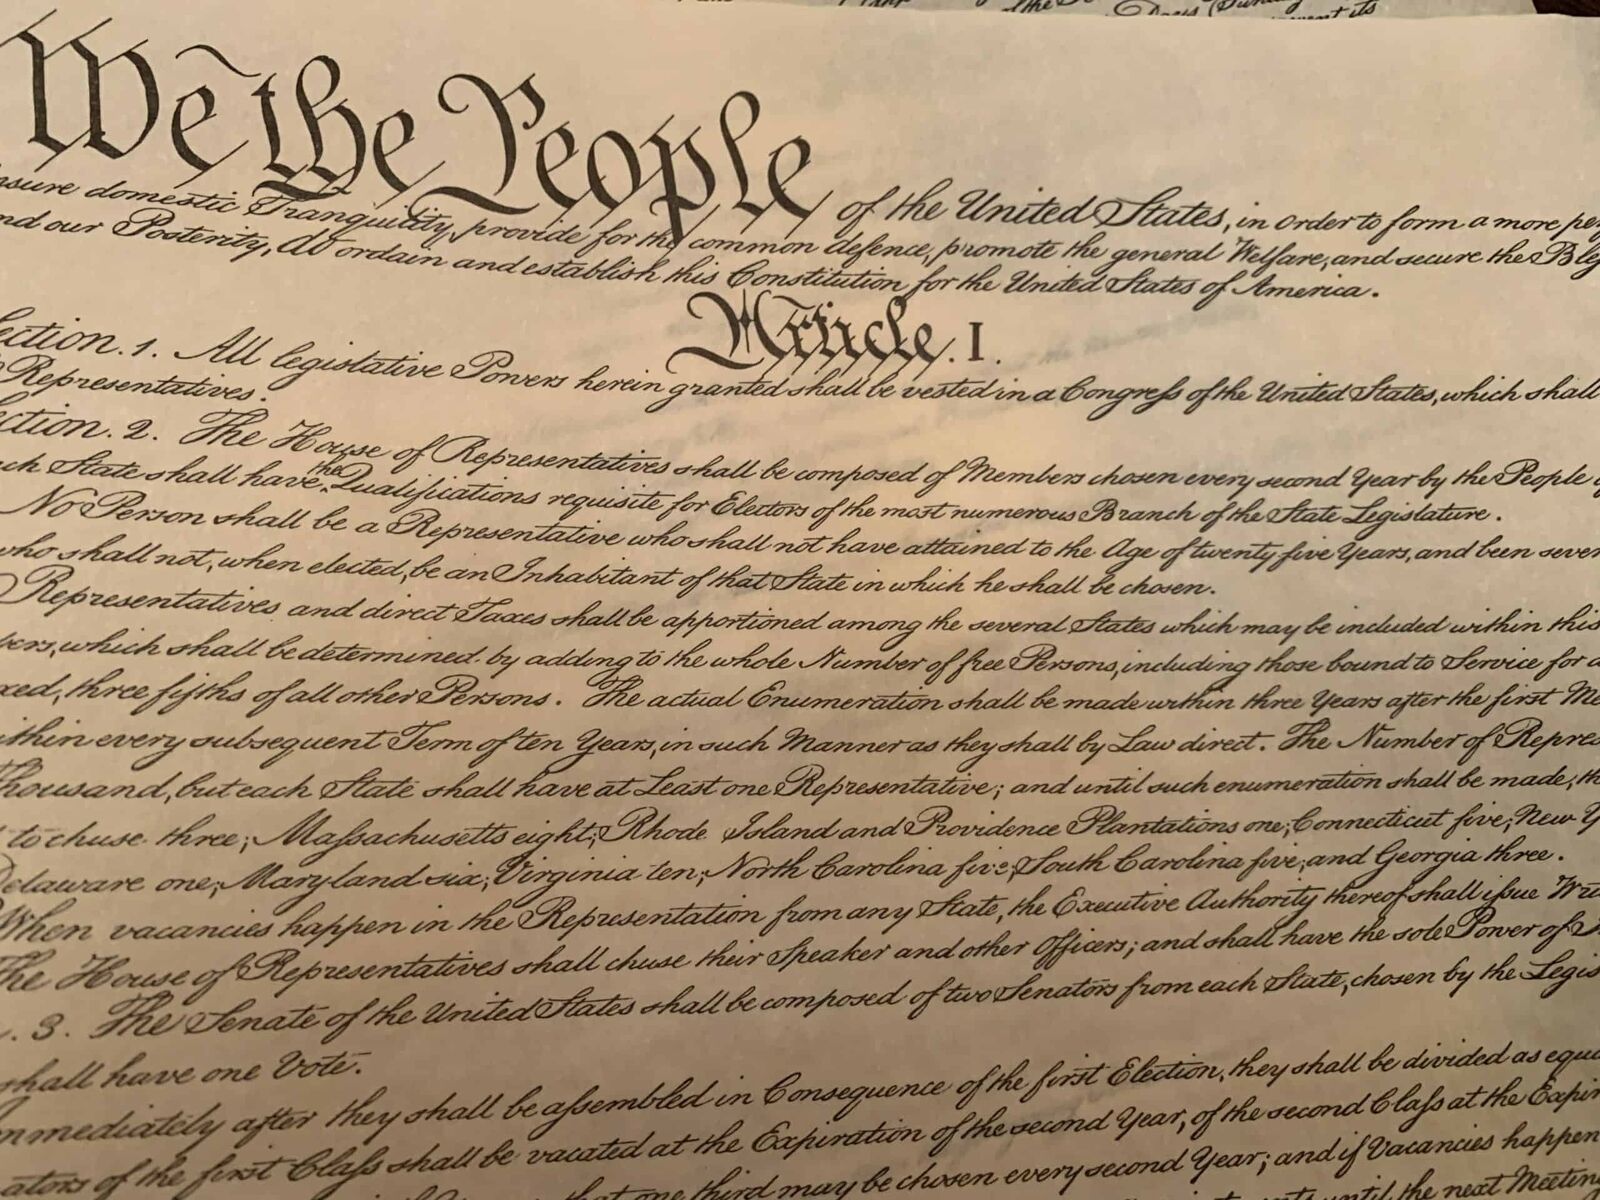 of the
Days (Sunday
We the People of the United States, in Order to form a more
domestic Tranquility, provide for the common defence, promote the general Welfare, and secure the
our Posterity, do ordain and establish this Constitution for the United States of America.
Article. I.
ection. 1. All legislative Powers herein granted shall be vested in a Congress of the United States, which shall
Representatives.
ction. 2. The House of Representatives shall be composed of Members chosen every second Year by the People
State shall have the Qualifications requisite for Electors of the most numerous Branch of the State Legislature.
No Person shall be a Representative who shall not have attained to the Age of twenty five Years, and been
who shall not, when elected, be an Inhabitant of that State in which he shall be chosen.
Representatives and direct Taxes shall be apportioned among the several States which may be included within this
bers, which shall be determined by adding to the whole Number of free Persons, including those bound to Service for a
xed, three fifths of all other Persons. The actual Enumeration shall be made within three Years after the first Me
ithin every subsequent Term of ten Years, in such Manner as they shall by Law direct. The Number of Repres
Thousand, but each State shall have at Least one Representative; and until such enumeration shall be made, th
to chuse three, Massachusetts eight, Rhode Island and Providence Plantations one, Connecticut five, New Y
Delaware one, Maryland six, Virginia ten, North Carolina five, South Carolina five, and Georgia three.
When vacancies happen in the Representation from any State, the Executive Authority thereof shall issue Wri
The House of Representatives shall chuse their Speaker and other Officers; and shall have the sole Power of I
. 3. The Senate of the United States shall be composed of two Senators from each State, chosen by the Legis
shall have one Vote.
Immediately after they shall be assembled in Consequence of the first Election, they shall be divided as equa
ators of the first Class shall be vacated at the Expiration of the second Year, of the second Class at the Expir
that one third may be chosen every second Year; and if Vacancies happen
until the next Meeting